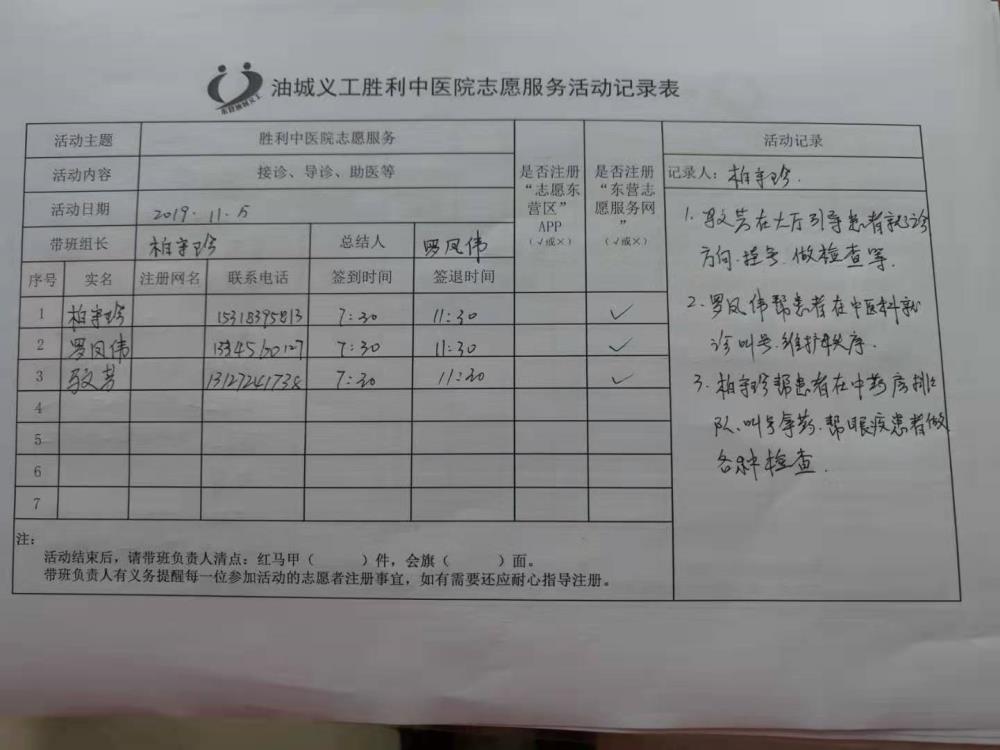 油城义工胜利中医院志愿服务活动记录表
东营油城义工
活动主题 胜利中医院志愿服务
活动内容 接诊、导诊、助医等
活动日期 2019.11.5
带班组长 柏守珍 总结人 罗凤伟
是否注册“志愿东营区”APP（√或×）
是否注册“东营志愿服务网”（√或×）
序号 实名 注册网名 联系电话 签到时间 签退时间
1 柏守珍 15318395813 7:30 11:30 ✓
2 罗凤伟 7:30 11:30 ✓
3 13127241738 7:30 11:30 ✓
4
5
6
7
活动记录
记录人：柏守珍.
1. 在大厅引导患者就诊
方向.挂号.做检查等.
2. 罗凤伟帮患者在中医科就
诊叫号.维护秩序.
3. 柏守珍帮患者在中药房排
队.叫号拿药.帮眼疾患者做
各种检查.
注：
活动结束后，请带班负责人清点：红马甲（ ）件，会旗（ ）面。
带班负责人有义务提醒每一位参加活动的志愿者注册事宜，如有需要还应耐心指导注册。